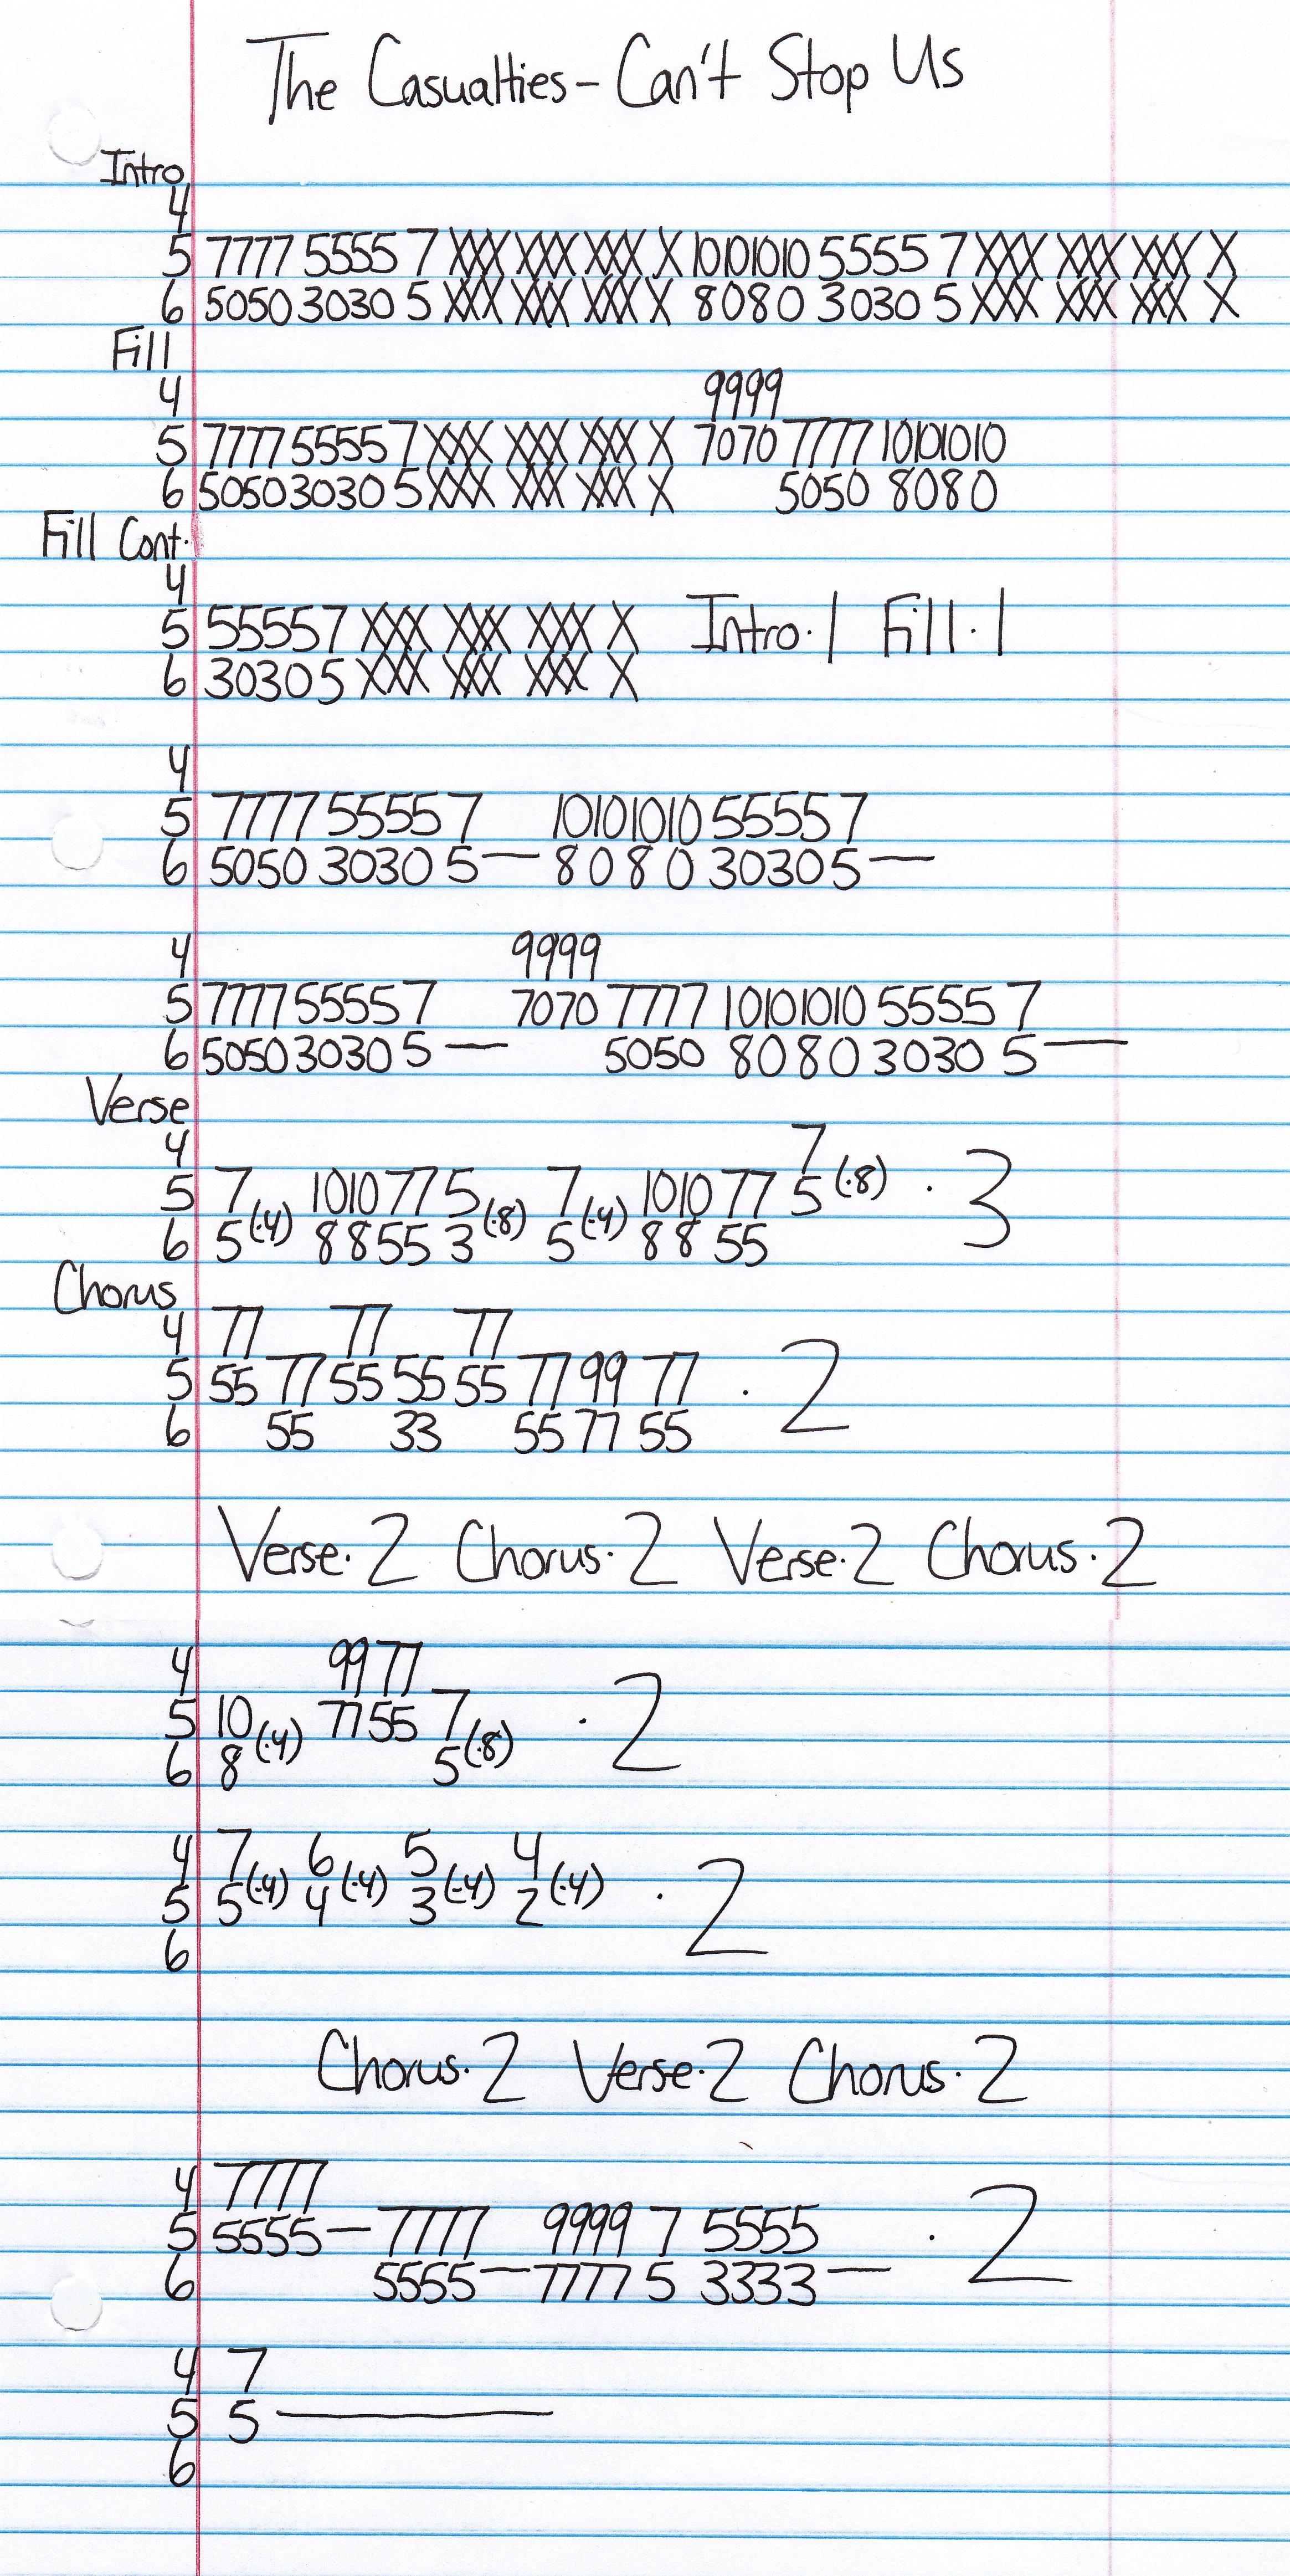 The Casualties - Can't Stop Us
Intro
4
5 7777 5555 7 XXX XXX XXX X 10101010 5555 7 XXX XXX XXX X
6 5050 3030 5 XXX XXX XXX X 8080 3030 5 XXX XXX XXX X
Fill
4 9999
5 7777 5555 7 XXX XXX XXX X 7070 7777 10101010
6 5050 3030 5 XXX XXX XXX X 5050 8080
Fill Cont.
4
5 5555 7 XXX XXX XXX X Intro·1 Fill·1
6 3030 5 XXX XXX XXX X
4
5 7777 5555 7 10101010 5555 7
6 5050 3030 5 — 8080 3030 5 —
4 9999
5 7777 5555 7 7070 7777 10101010 5555 7
6 5050 3030 5 — 5050 8080 3030 5 —
Verse
4 7
5 7 (·4) 1010 77 5 (·8) 7 (·4) 1010 77 5 (·8) · 3
6 5 88 55 3 5 88 55
Chorus
4 77 77 77
5 55 77 55 55 55 77 99 77 · 2
6 55 33 55 77 55
Verse·2 Chorus·2 Verse·2 Chorus·2
4 99 77
5 10 (·4) 77 55 7 (·8) · 2
6 8 5
4 7 (·4) 6 (·4) 5 (·4) 4 (·4) · 2
5 5 4 3 2
6
Chorus·2 Verse·2 Chorus·2
4 7777
5 5555 — 7777 9999 7 5555 · 2
6 5555 — 7777 5 3333 —
4 7
5 5 —
6